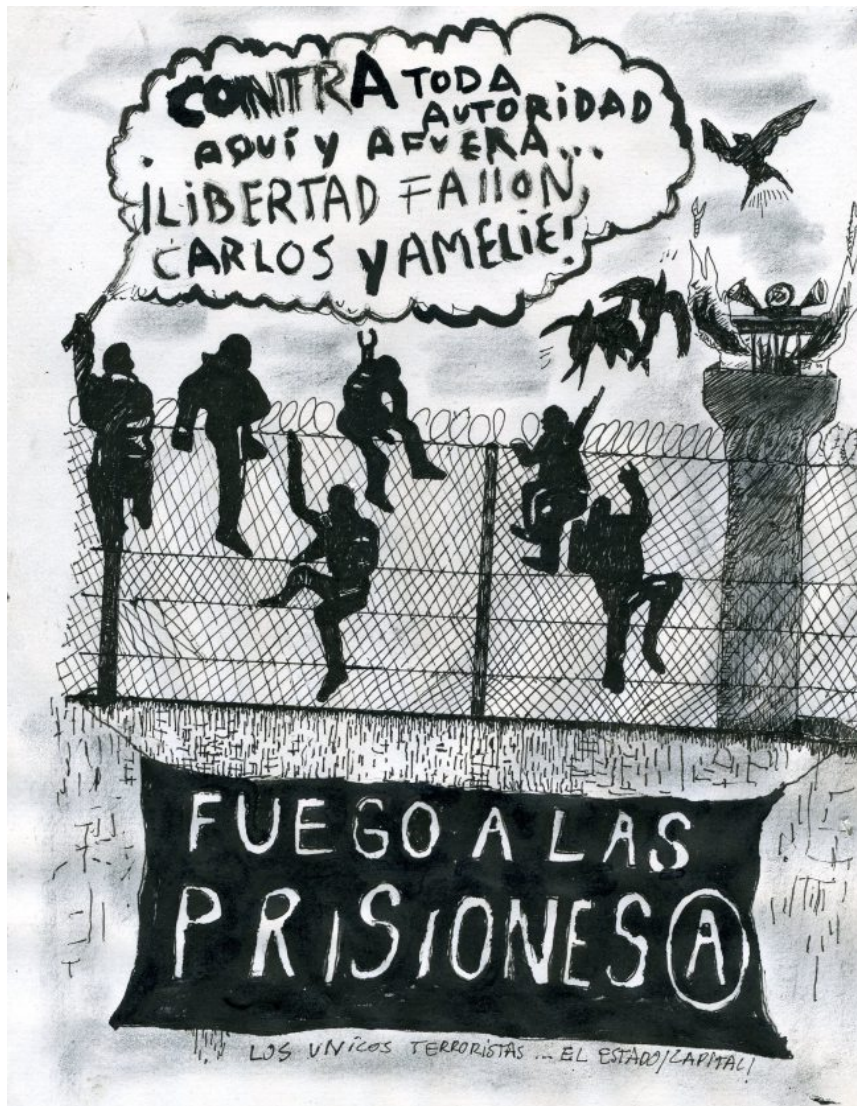 CONTRA TODA
AUTORIDAD
AQUÍ Y AFUERA...
¡LIBERTAD FALLON,
CARLOS Y AMELIE!
FUEGO A LAS
PRISIONES Ⓐ
LOS UNICOS TERRORISTAS... EL ESTADO/CAPITAL!